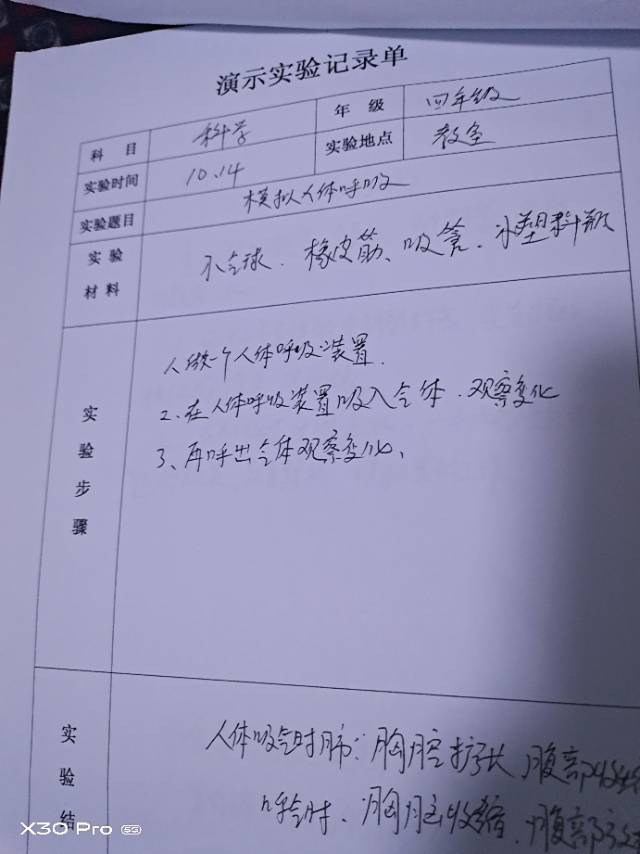 演示实验记录单
科 目 科学 年 级 四年级
实验时间 10.14 实验地点 教室
实验题目 模拟人体呼吸
实验材料 气球、橡皮筋、吸管、塑料瓶
实验步骤
1、做一个人体呼吸装置.
2、在人体呼吸装置吸入气体、观察变化
3、再呼出气体观察变化、
实验结
人体吸气时肺:胸腔扩张 腹部收缩
呼气时、胸腔收缩、腹部
X30 Pro 5G